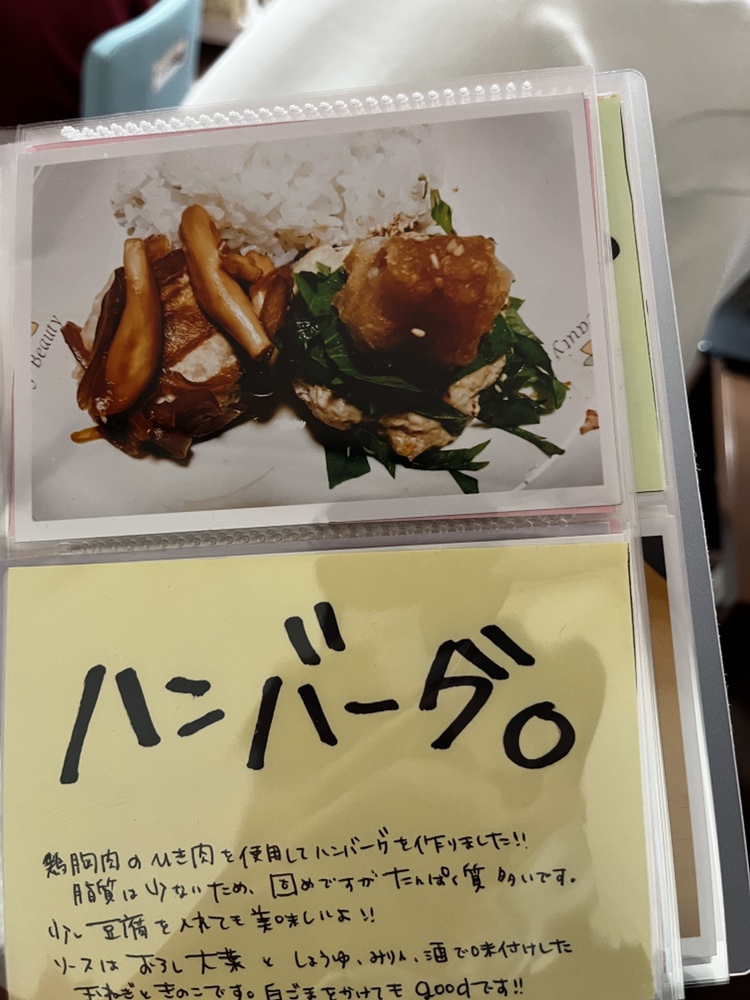 Beauty
ハンバーグ。
鶏胸肉のひき肉を使用してハンバーグを作りました!!
脂質は少ないため、固めですがたんぱく質多いです。
少し豆腐を入れても美味しいよ!!
ソースはおろし大葉としょうゆ、みりん、酒で味付けした
玉ねぎときのこです。白ごまをかけてもgoodです!!